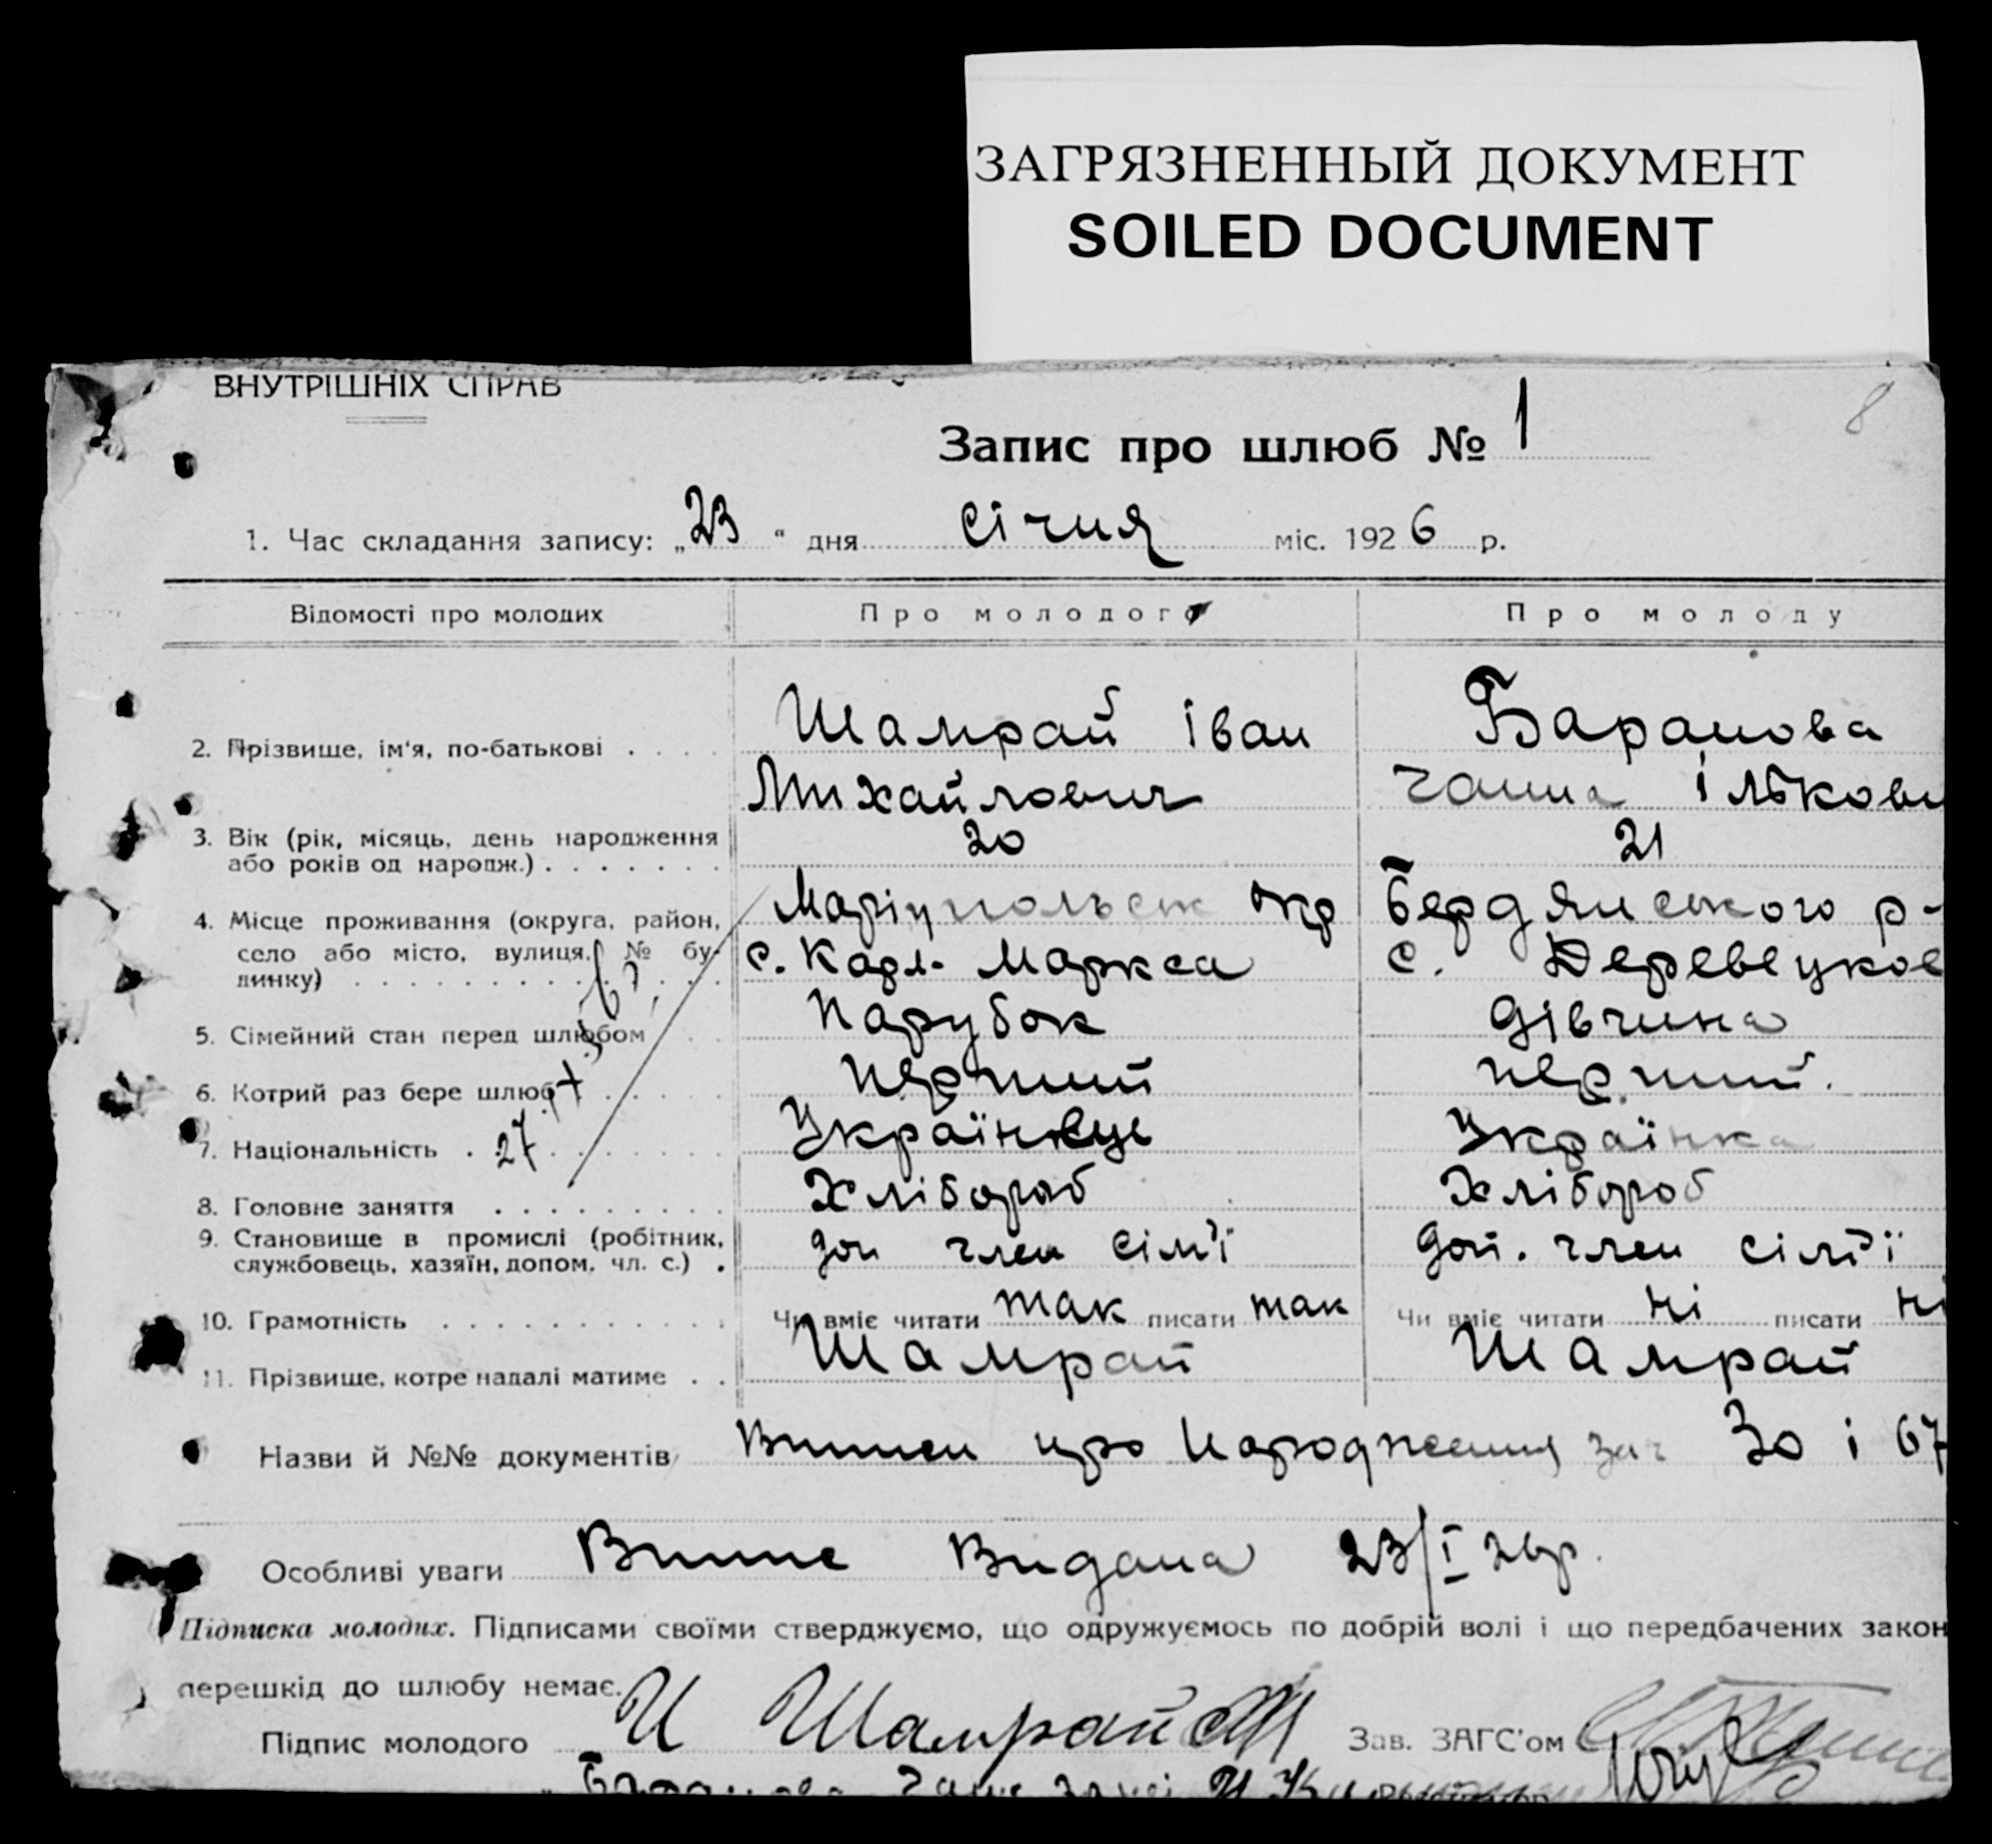 ЗАГРЯЗНЕННЫЙ ДОКУМЕНТ
SOILED DOCUMENT
ВНУТРІШНІХ СПРАВ
8
Запис про шлюб № 1
1. Час складання запису: „23“ дня січня міс. 1926 р.
Відомості про молодих Про молодого Про молоду
2. Прізвище, ім'я, по-батькові . . . . Шамрай Іван Баранова
Михайлович Ганна Ількови
3. Вік (рік, місяць, день народження 20 21
або років од народж.) . . . . . . .
4. Місце проживання (округа, район, Маріупольськ окр Бердянського р-
село або місто, вулиця, № бу- с. Карл. Маркса с. Деревецкое
динку) . . . . . . . . . . . . .
5. Сімейний стан перед шлюбом . . Парубок дівчина
6. Котрий раз бере шлюб . . . . . перший перший.
7. Національність . . . . . . . . Українець Українка
27
8. Головне заняття . . . . . . . . . Хлібороб Хлібороб
9. Становище в промислі (робітник, доп член сім'ї доп. член сім'ї
службовець, хазяїн, допом. чл. с.) .
10. Грамотність . . . . . . . . . . . Чи вміє читати так писати так Чи вміє читати ні писати ні
11. Прізвище, котре надалі матиме . . Шамрай Шамрай
Назви й №№ документів Виписи про народження зач 30 і 67
Особливі уваги Випис Видана 23/I 26р.
Підписка молодих. Підписами своїми стверджуємо, що одружуємось по добрій волі і що передбачених закон
перешкід до шлюбу немає.
Підпис молодого И Шамрай Зав. ЗАГС'ом
Баранова